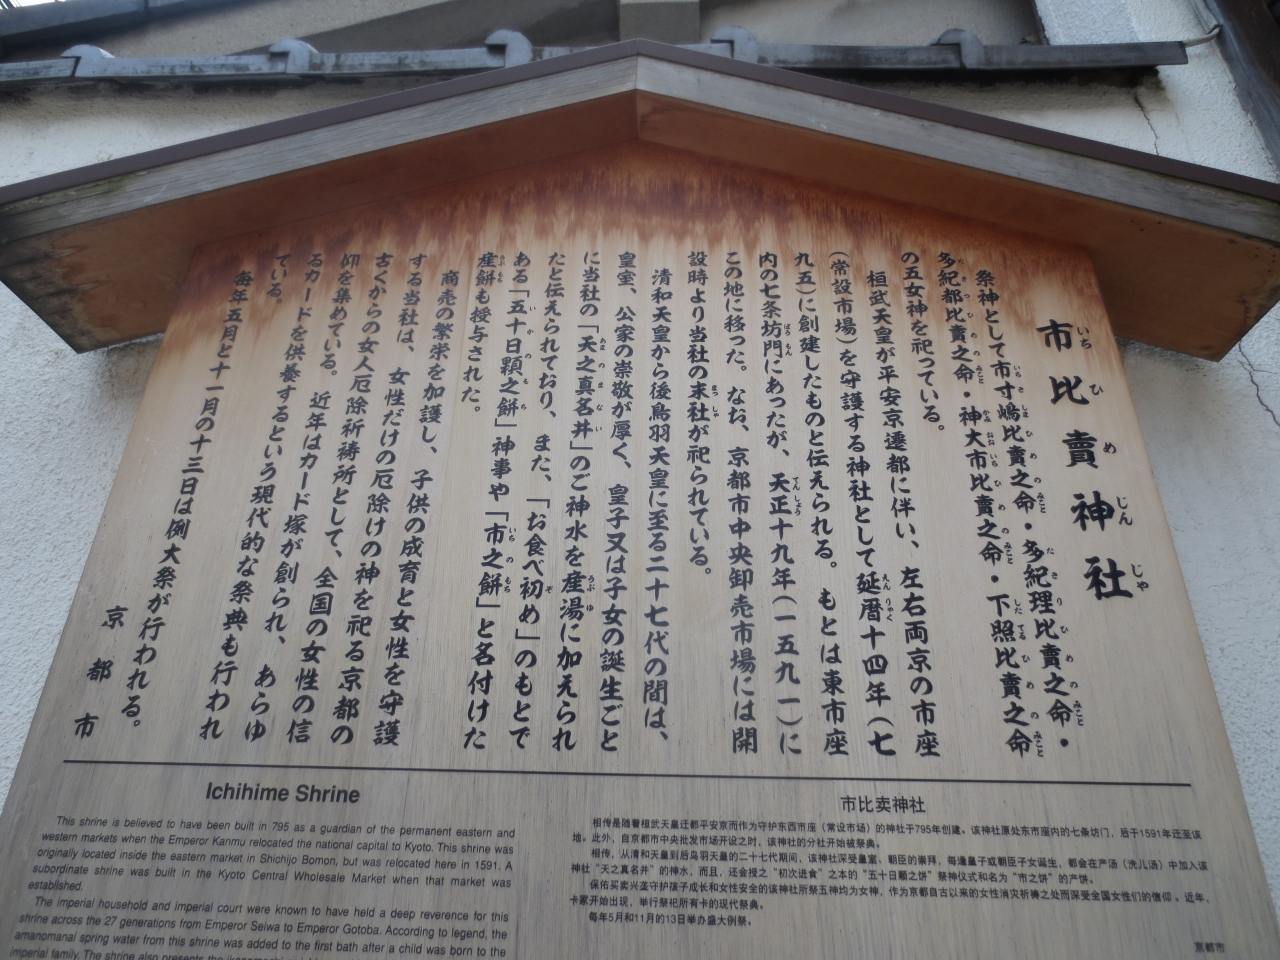 市比賣神社
祭神として市寸嶋比賣之命・多紀理比賣之命・
多紀都比賣之命・神大市比賣之命・下照比賣之命
の五女神を祀っている。
桓武天皇が平安京遷都に伴い、左右両京の市座
(常設市場)を守護する神社として延暦十四年(七
九五)に創建したものと伝えられる。もとは東市座
内の七条坊門にあったが、天正十九年(一五九一)に
この地に移った。なお、京都市中央卸売市場には開
設時より当社の末社が祀られている。
清和天皇から後鳥羽天皇に至る二十七代の間は、
皇室、公家の崇敬が厚く、皇子又は子女の誕生ごと
に当社の「天之真名井」のご神水を産湯に加えられ
たと伝えられており、また、「お食べ初め」のもとで
ある「五十日顆之餅」神事や「市之餅」と名付けた
産餅も授与された。
商売の繁栄を加護し、子供の成育と女性を守護
する当社は、女性だけの厄除けの神を祀る京都の
古くからの女人厄除祈祷所として、全国の女性の信
仰を集めている。近年はカード塚が創られ、あらゆ
るカードを供養するという現代的な祭典も行われ
ている。
毎年五月と十一月の十三日は例大祭が行われる。
京都市
Ichihime Shrine
This shrine is believed to have been built in 795 as a guardian of the permanent eastern and
western markets when the Emperor Kanmu relocated the national capital to Kyoto. This shrine was
originally located inside the eastern market in Shichijo Bomon, but was relocated here in 1591. A
subordinate shrine was built in the Kyoto Central Wholesale Market when that market was
established.
The imperial household and imperial court were known to have held a deep reverence for this
shrine across the 27 generations from Emperor Seiwa to Emperor Gotoba. According to legend, the
amanomanai spring water from this shrine was added to the first bath after a child was born to the
imperial family. The shrine also presents the
市比卖神社
相传是随着桓武天皇迁都平安京而作为守护东西市座(常设市场)的神社于795年创建。该神社原处东市座内的七条坊门,后于1591年迁至该
地。此外,自京都市中央批发市场开设之时,该神社的分社开始被祭典。
相传,从清和天皇到后鸟羽天皇的二十七代期间,该神社深受皇室、朝臣的崇拜,每逢皇子或朝臣子女诞生,都会在产汤(洗儿汤)中加入该
神社“天之真名井”的神水,而且,还会授之“初次进食”之本的“五十日顆之饼”祭神仪式和名为“市之饼”的产饼。
保佑买卖兴荃守护孩子成长和女性安全的该神社所祭五神均为女神,作为京都自古以来的女性消灾祈祷之处而深受全国女性们的信仰。近年,
卡冢开始出现,举行祭祀所有卡的现代祭典。
每年5月和11月的13日举办盛大例祭。
京都市